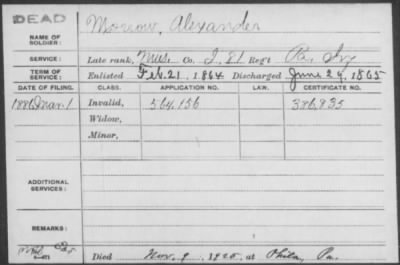 DEAD
NAME OF SOLDIER: Morrow, Alexander
SERVICE: Late rank, Mus. Co. I, 81 Regt Pa. Inf
TERM OF SERVICE: Enlisted Feb. 21, 1864 Discharged June 29, 1865
DATE OF FILING. CLASS. APPLICATION NO. LAW. CERTIFICATE NO.
1886 Mar 1 Invalid, 564,156 386,935
Widow,
Minor,
ADDITIONAL SERVICES:
REMARKS:
Died Nov. 9, 1925, at Phila, Pa.